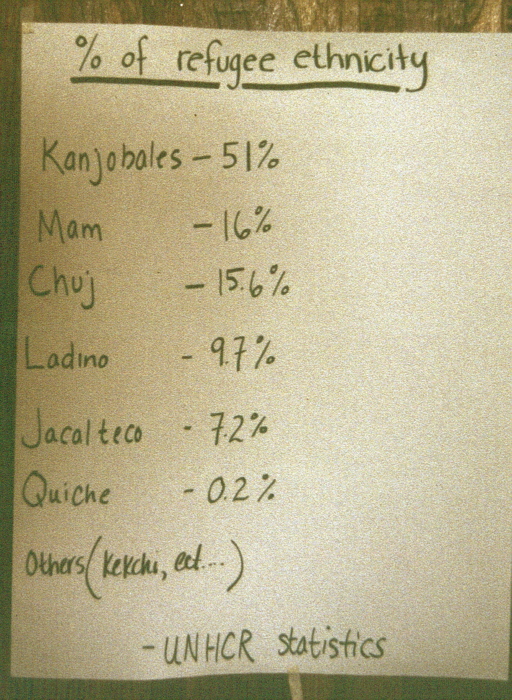 % of refugee ethnicity
Kanjobales - 51%
Mam - 16%
Chuj - 15.6%
Ladino - 9.7%
Jacalteco - 7.2%
Quiche - 0.2%
Others (Kekchi, ect...)
- UNHCR statistics